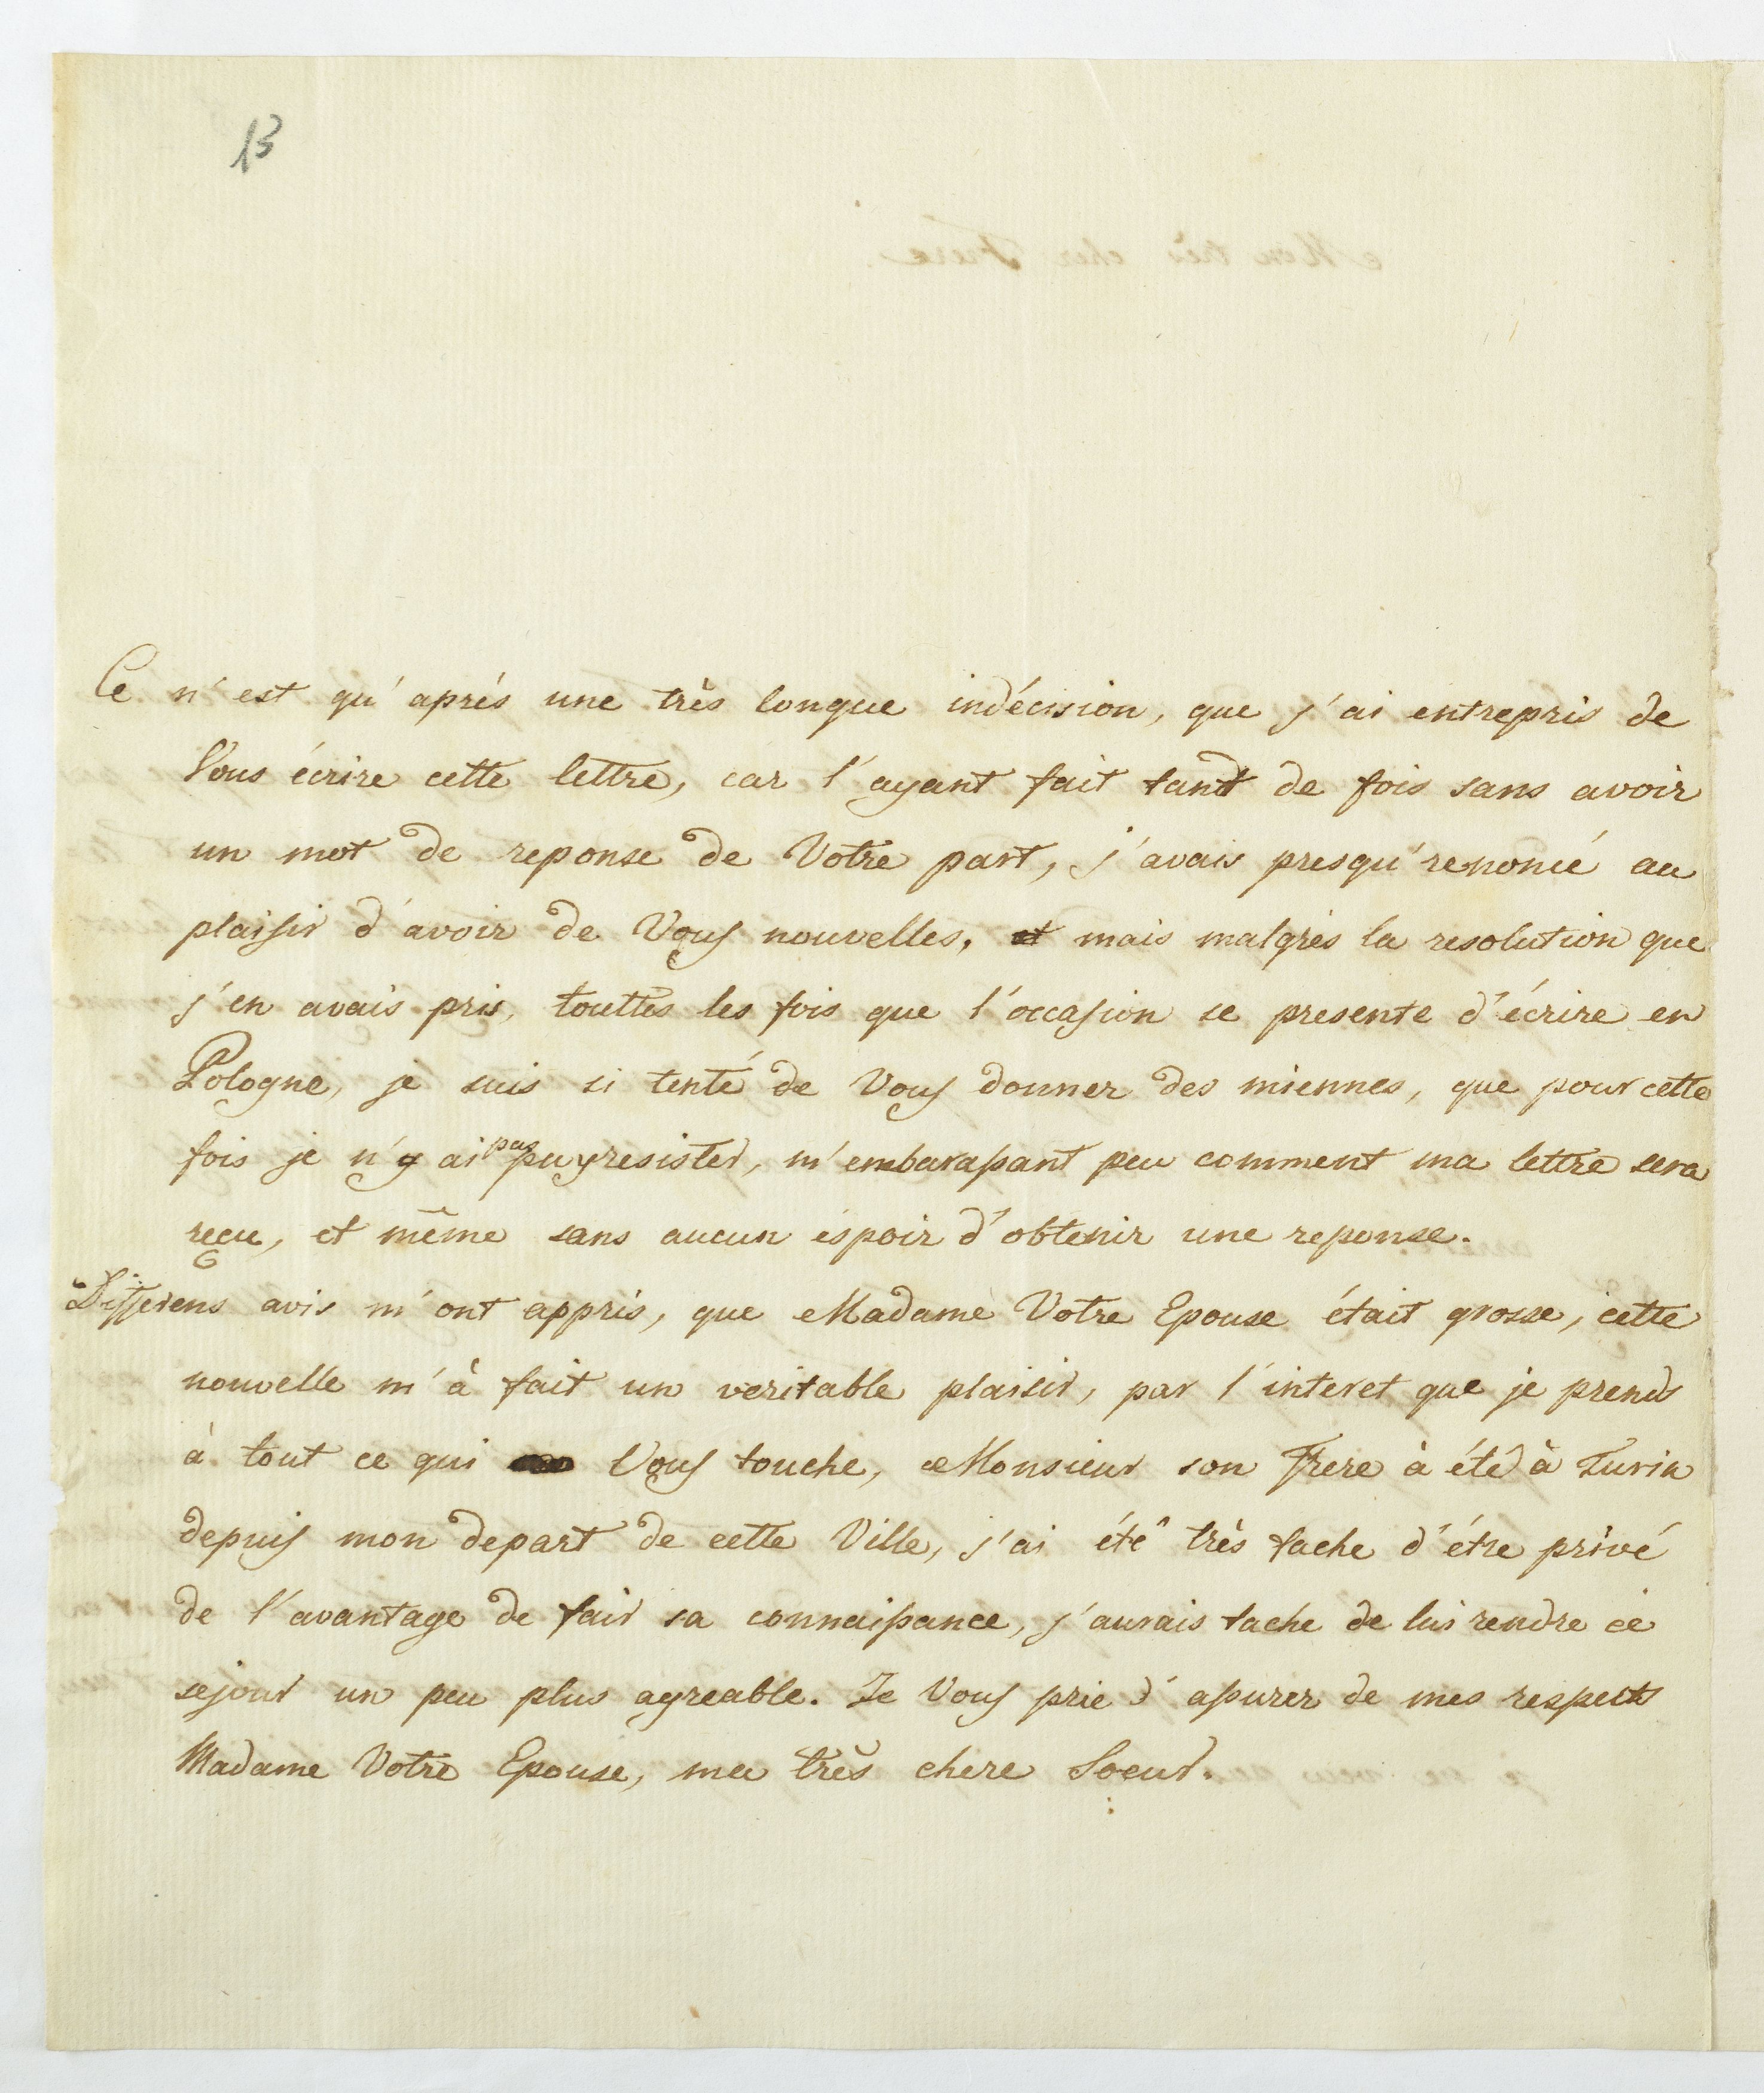 13
Ce n'est qu'aprés une très longue indécision, que j'ai entrepris de
Vous écrire cette lettre, car l'ayant fait tant de fois sans avoir
un mot de reponse de Votre part, j'avais presqu'renoncé au
plaisir d'avoir de Vous nouvelles, et mais malgrés la resolution que
j'en avais pris, touttes les fois que l'occasion se presente d'écrire en
Pologne, je suis si tenté de Vous donner des miennes, que pour cette
fois je n'y ai pas pu y resister, m'embarassant peu comment ma lettre sera
reçu, et même sans aucun éspoir d'obtenir une reponse.
Differens avis m'ont appris, que Madame Votre Epouse était grosse, cette
nouvelle m'à fait un veritable plaisir, par l'interet que je prends
à tout ce qui Vous touche, Monsieur son Frere à été à Turin
depuis mon depart de cette Ville, j'ai été très fache d'étre privé
de l'avantage de fair sa connaissance, j'aurais tache de lui rendre ce
sejour un peu plus agreable. Je Vous prie d'assurer de mes respects
Madame Votre Epouse, ma très chere Soeur.